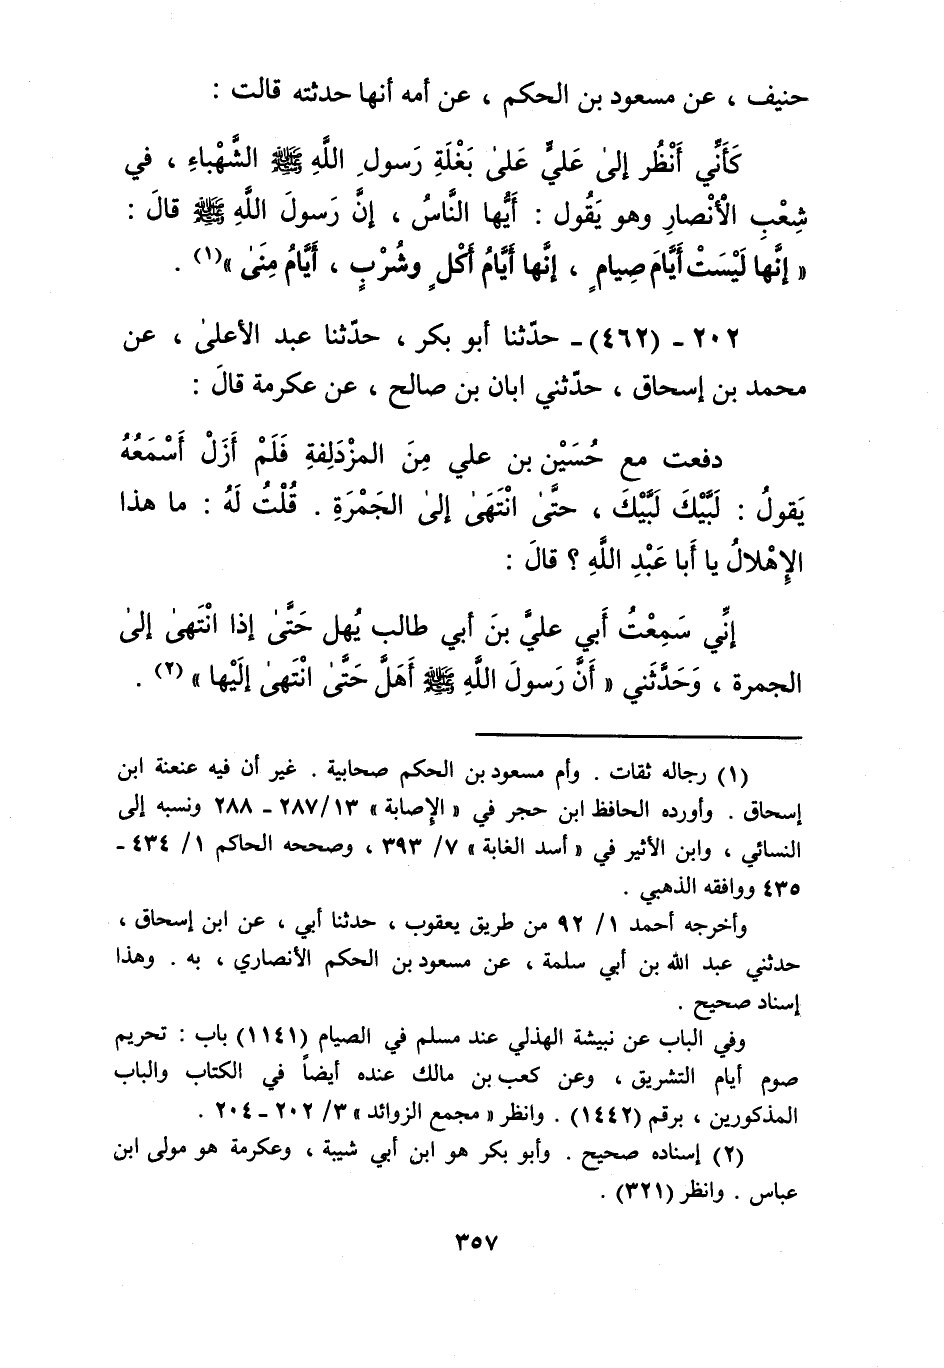 حنيف ، عن مسعود بن الحكم ، عن أمه أنها حدثته قالت :
كَأَنِّي أَنْظُر إلىٰ عَليٍّ عَلىٰ بَغْلَةِ رَسولِ اللَّهِ ﷺ الشَّهْباءِ ، في
شِعْبِ الْأَنْصارِ وهو يَقُول : أَيُّها النَّاسُ ، إنَّ رَسولَ اللَّهِ ﷺ قالَ :
« إنَّها لَيْسَتْ أَيَّامَ صِيامٍ ، إنَّها أَيَّامُ أَكْلٍ وشُرْبٍ ، أَيَّامُ مِنَىٰ »(١) .
٢٠٢ - (٤٦٢) - حدّثنا أبو بكر ، حدّثنا عبد الأعلىٰ ، عن
محمد بن إسحاق ، حدّثني ابان بن صالح ، عن عكرمة قالَ :
دفعت مع حُسَيْن بن علي مِنَ المزْدَلِفةِ فَلَمْ أَزَلْ أَسْمَعُهُ
يَقولُ : لَبَّيْكَ لَبَّيْكَ ، حتَّىٰ انْتَهَىٰ إلىٰ الجَمْرَةِ . قُلْتُ لَهُ : ما هذا
الإِهْلالُ يا أَبا عَبْدِ اللَّهِ ؟ قالَ :
إنِّي سَمِعْتُ أَبي عليَّ بنَ أبي طالب يُهل حَتَّىٰ إذا انْتَهىٰ إلىٰ
الجمرة ، وَحَدَّثَني « أَنَّ رَسولَ اللَّهِ ﷺ أَهَلَّ حَتَّىٰ انْتَهىٰ إلَيْها » (٢) .
(١) رجاله ثقات . وأم مسعود بن الحكم صحابية . غير أن فيه عنعنة ابن
إسحاق . وأورده الحافظ ابن حجر في « الإصابة » ١٣/ ٢٨٧ - ٢٨٨ ونسبه إلى
النسائي ، وابن الأثير في « أسد الغابة » ٧/ ٣٩٣ ، وصححه الحاكم ١/ ٤٣٤ -
٤٣٥ ووافقه الذهبي .
وأخرجه أحمد ١/ ٩٢ من طريق يعقوب ، حدثنا أبي ، عن ابن إسحاق ،
حدثني عبد الله بن أبي سلمة ، عن مسعود بن الحكم الأنصاري ، به . وهذا
إسناد صحيح .
وفي الباب عن نبيشة الهذلي عند مسلم في الصيام (١١٤١) باب : تحريم
صوم أيام التشريق ، وعن كعب بن مالك عنده أيضاً في الكتاب والباب
المذكورين ، برقم (١٤٤٢) . وانظر « مجمع الزوائد » ٣/ ٢٠٢ - ٢٠٤ .
(٢) إسناده صحيح . وأبو بكر هو ابن أبي شيبة ، وعكرمة هو مولى ابن
عباس . وانظر (٣٢١) .
٣٥٧